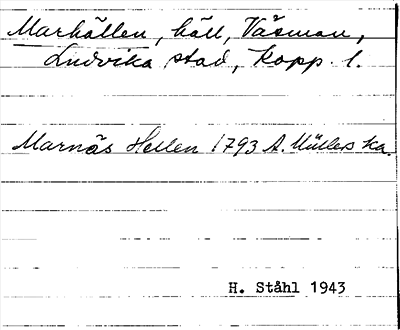 Marhällen, häll, Väsman,
Ludvika stad, Kopp. l.
Marnäs Hellen 1793 A. Müllers ka.
H. Ståhl 1943